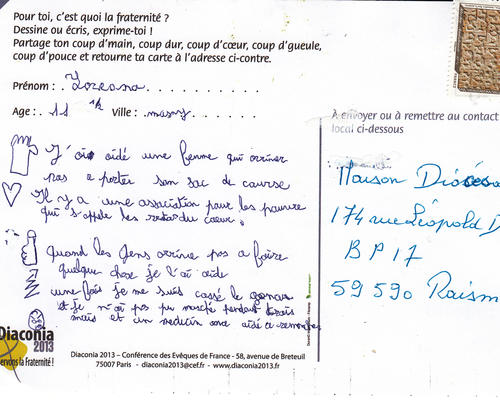 Pour toi, c'est quoi la fraternité ?
Dessine ou écris, exprime-toi !
Partage ton coup d'main, coup dur, coup d'cœur, coup d'gueule,
coup d'pouce et retourne ta carte à l'adresse ci-contre.
Prénom : Lorana
Age : 11 1/2 Ville : massy
A envoyer ou à remettre au contact
local ci-dessous
J'ai aidé une femme qui arriver
pas a porter son sac de course
Il y a une association pour les pauvre
qui s'appele les restos du cœur.
Quand les gens arrive pas a faire
quelque chose je l'ai aide
une fois je me suis cassé le genou
et je n'ai pas pu marché pendant mois
mais et un medecin ma aidé a
Maison Diocésa
174 rue Léopold D
BP 17
59 590 Raism
Diaconia
2013
ervons la Fraternité !
Diaconia 2013 – Conférence des Evêques de France - 58, avenue de Breteuil
75007 Paris - diaconia2013@cef.fr - www.diaconia2013.fr